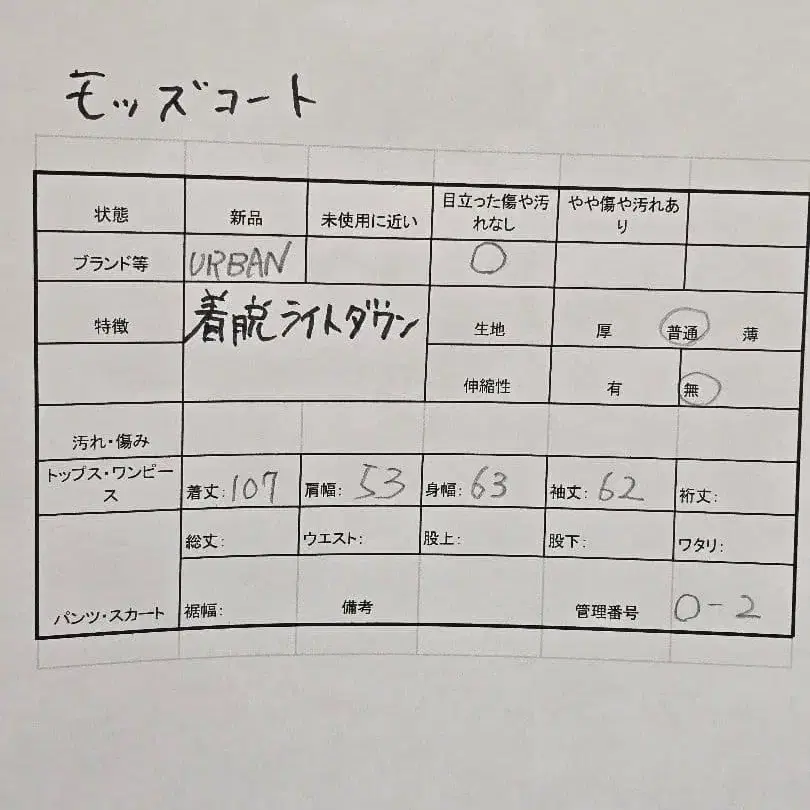 モッズコート
状態 新品 未使用に近い 目立った傷や汚れなし やや傷や汚れあり
ブランド等 URBAN ○
特徴 着脱ライトダウン 生地 厚 普通 薄
伸縮性 有 無
汚れ・傷み
トップス・ワンピース 着丈:107 肩幅:53 身幅:63 袖丈:62 裄丈:
総丈: ウエスト: 股上: 股下: ワタリ:
パンツ・スカート 裾幅: 備考 管理番号 0-2